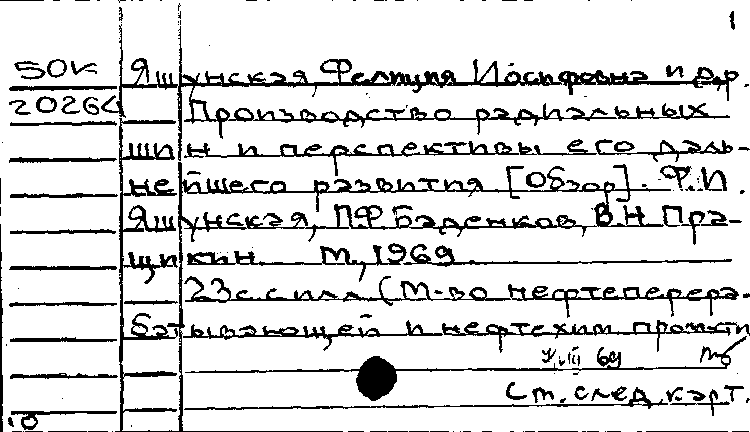 1
50К Яшунская, Фелиция Иосифовна и др.
20264 Производство радиальных
шин и перспективы его даль-
нейшего развития [Обзор]. Ф.И.
Яшунская, П.Ф. Баденков, В.Н. Пра-
щикин. М., 1969.
23 с. с илл. (М-во нефтеперера-
батывающей и нефтехим. пром-сти
69
См. след. карт.
10